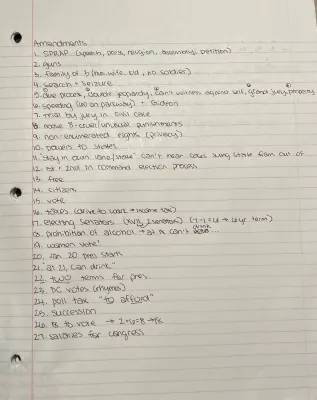 Amendments
1. SPRAP (speech, press, religion, assembly, petition)
2. guns
3. family of 3 (no wife, kid, no soldier)
4. search + seizure
5. due process, double jeopardy, can't witness against self, grand jury, property
6. speeding (on parkway) +
7. trial by jury in civil case
8. 8 = cruel/unusual punishments
9. non-enumerated rights (privacy)
10. powers to states
11. "stay in own lane/state" can't hear cases suing state from out of
12. 1st + 2nd in command election process
13. free
14. citizens
15. vote
16. taxes (drive to work → income tax)
17. electing senators (6 yr term)
18. prohibition of alcohol → at 18 can't drink
19. women vote!
20. Jan 20 pres starts
21. "at 21, can drink"
22. two terms for pres.
23. DC votes (rhymes)
24. poll tax "to afford"
25. succession
26. 18 to vote → 2+6=8 → 18
27. salaries for congress